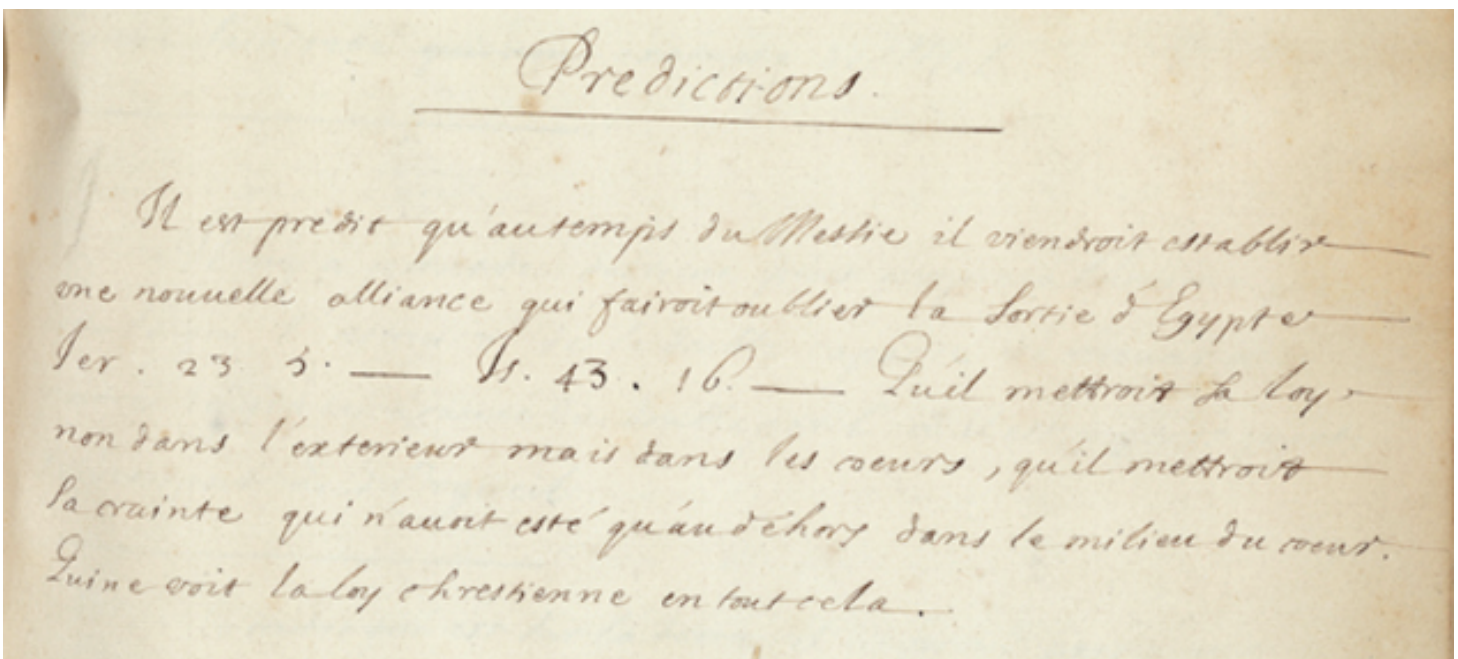 Predictions.
Il est predit qu'au temps du Messie il viendroit establir
vne nouuelle alliance qui fairoit oublier la sortie d'Egypte
Jer. 23. 5. — Is. 43. 16. — Qu'il mettroit sa loy
non dans l'exterieur mais dans les coeurs, qu'il mettroit
sa crainte qui n'auoit esté qu'au déhors dans le milieu du coeur.
Qui ne voit la loy chrestienne en tout cela.